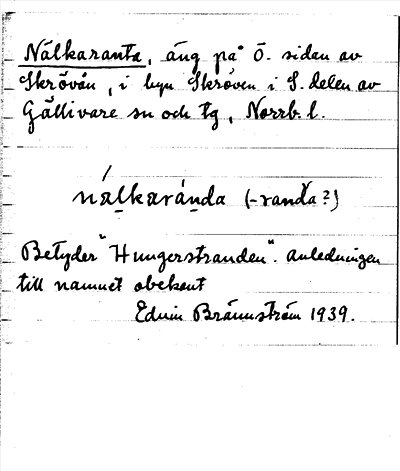 Nälkaranta, äng på Ö. sidan av
Skröván, i byn Skröven i S. delen av
Gällivare sn och tg, Norrb. l.
nálkaránda (-randa?)
Betyder "Hungerstranden". Anledningen
till namnet obekant
Edvin Brännström 1939.